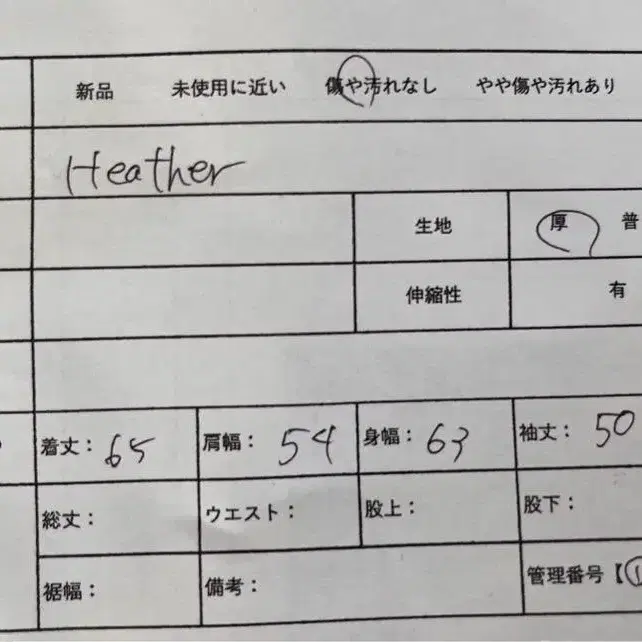 新品 未使用に近い 傷や汚れなし やや傷や汚れあり
Heather
生地 厚 普
伸縮性 有
着丈： 65 肩幅： 54 身幅： 63 袖丈： 50
総丈： ウエスト： 股上： 股下：
裾幅： 備考： 管理番号【①